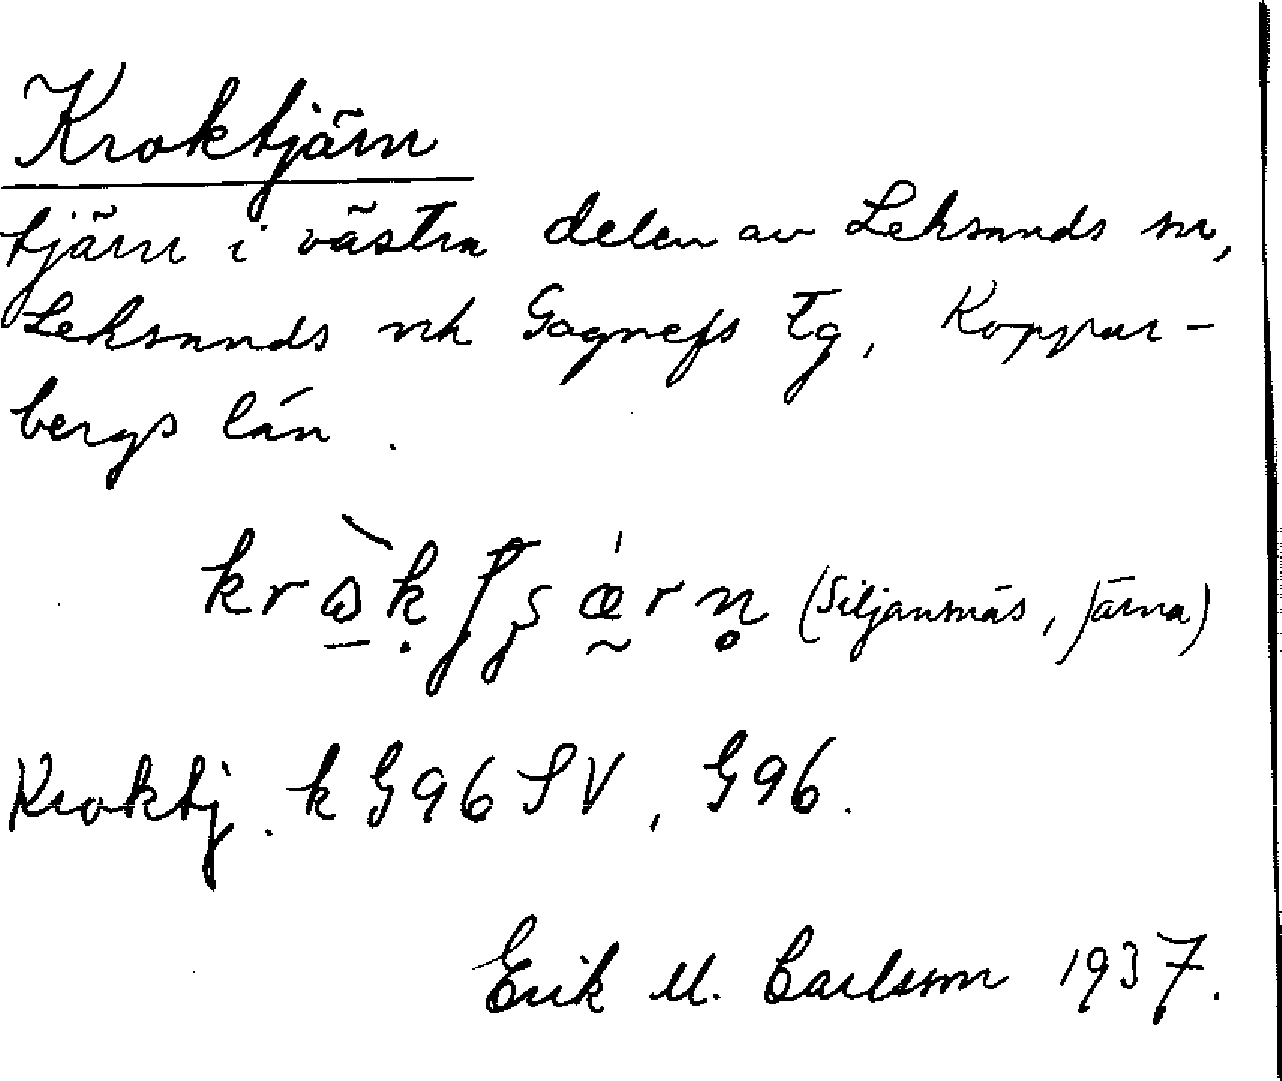 Kroktjärn
tjärn i västra delen av Leksands sn,
Leksands vh Gagnefs tg, Koppar-
bergs län.
(Siljansnäs, Järna)
Kroktj. k G96 SV, G96.
Erik M. Carlsson 1937.